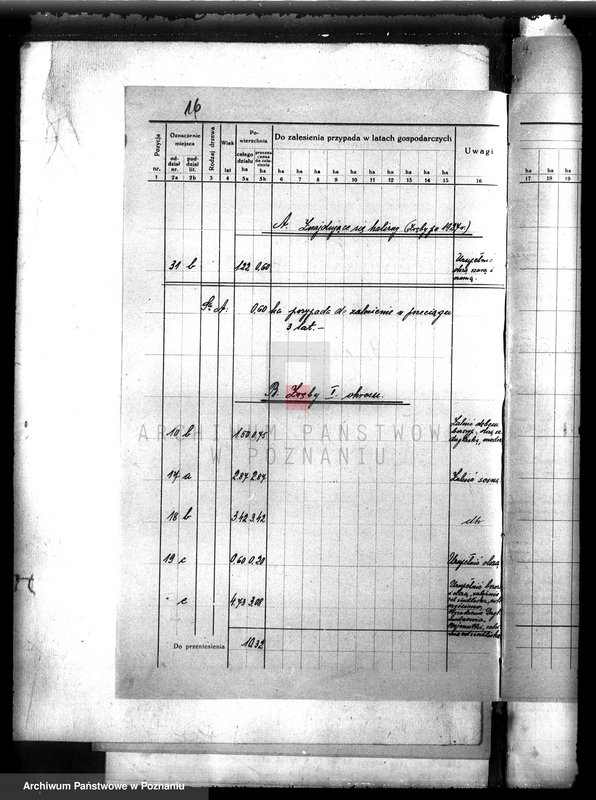 16
4.
Pozycja nr.
Oznaczenie miejsca
od-dział nr.
pod-dział lit.
Rodzaj drzewa
Wiek lat
Po-wierzchnia
całego działu ha
ha
Do zalesienia przypada w latach gospodarczych
Uwagi
ha ha ha ha ha ha ha ha ha ha
ha ha ha
1 2a 2b 3 4 5a 5b 6 7 8 9 10 11 12 13 14 15 16 17 18 19
A. Znajdujące się halizny (Zręby po 1924 r.)
31 b 1.22 0.60 Uzupełnić
olszą szarą i
czarną.
A: 0,60 ha przypada do zalesienia w przeciągu
3 lat.-
B. Zręby I. okresu.
10 b 1.50 0.75 Zalesić dębem
17 a 2.87 2.87 Zalesić sosną
18 b 3.42 3.42 dto
19 c 0,60 0,20 Uzupełnić olszą
" e 4.73 3.08 Uzupełnić
Do przeniesienia 10.32
ARCHIWUM PAŃSTWOWE
W POZNANIU
Archiwum Państwowe w Poznaniu